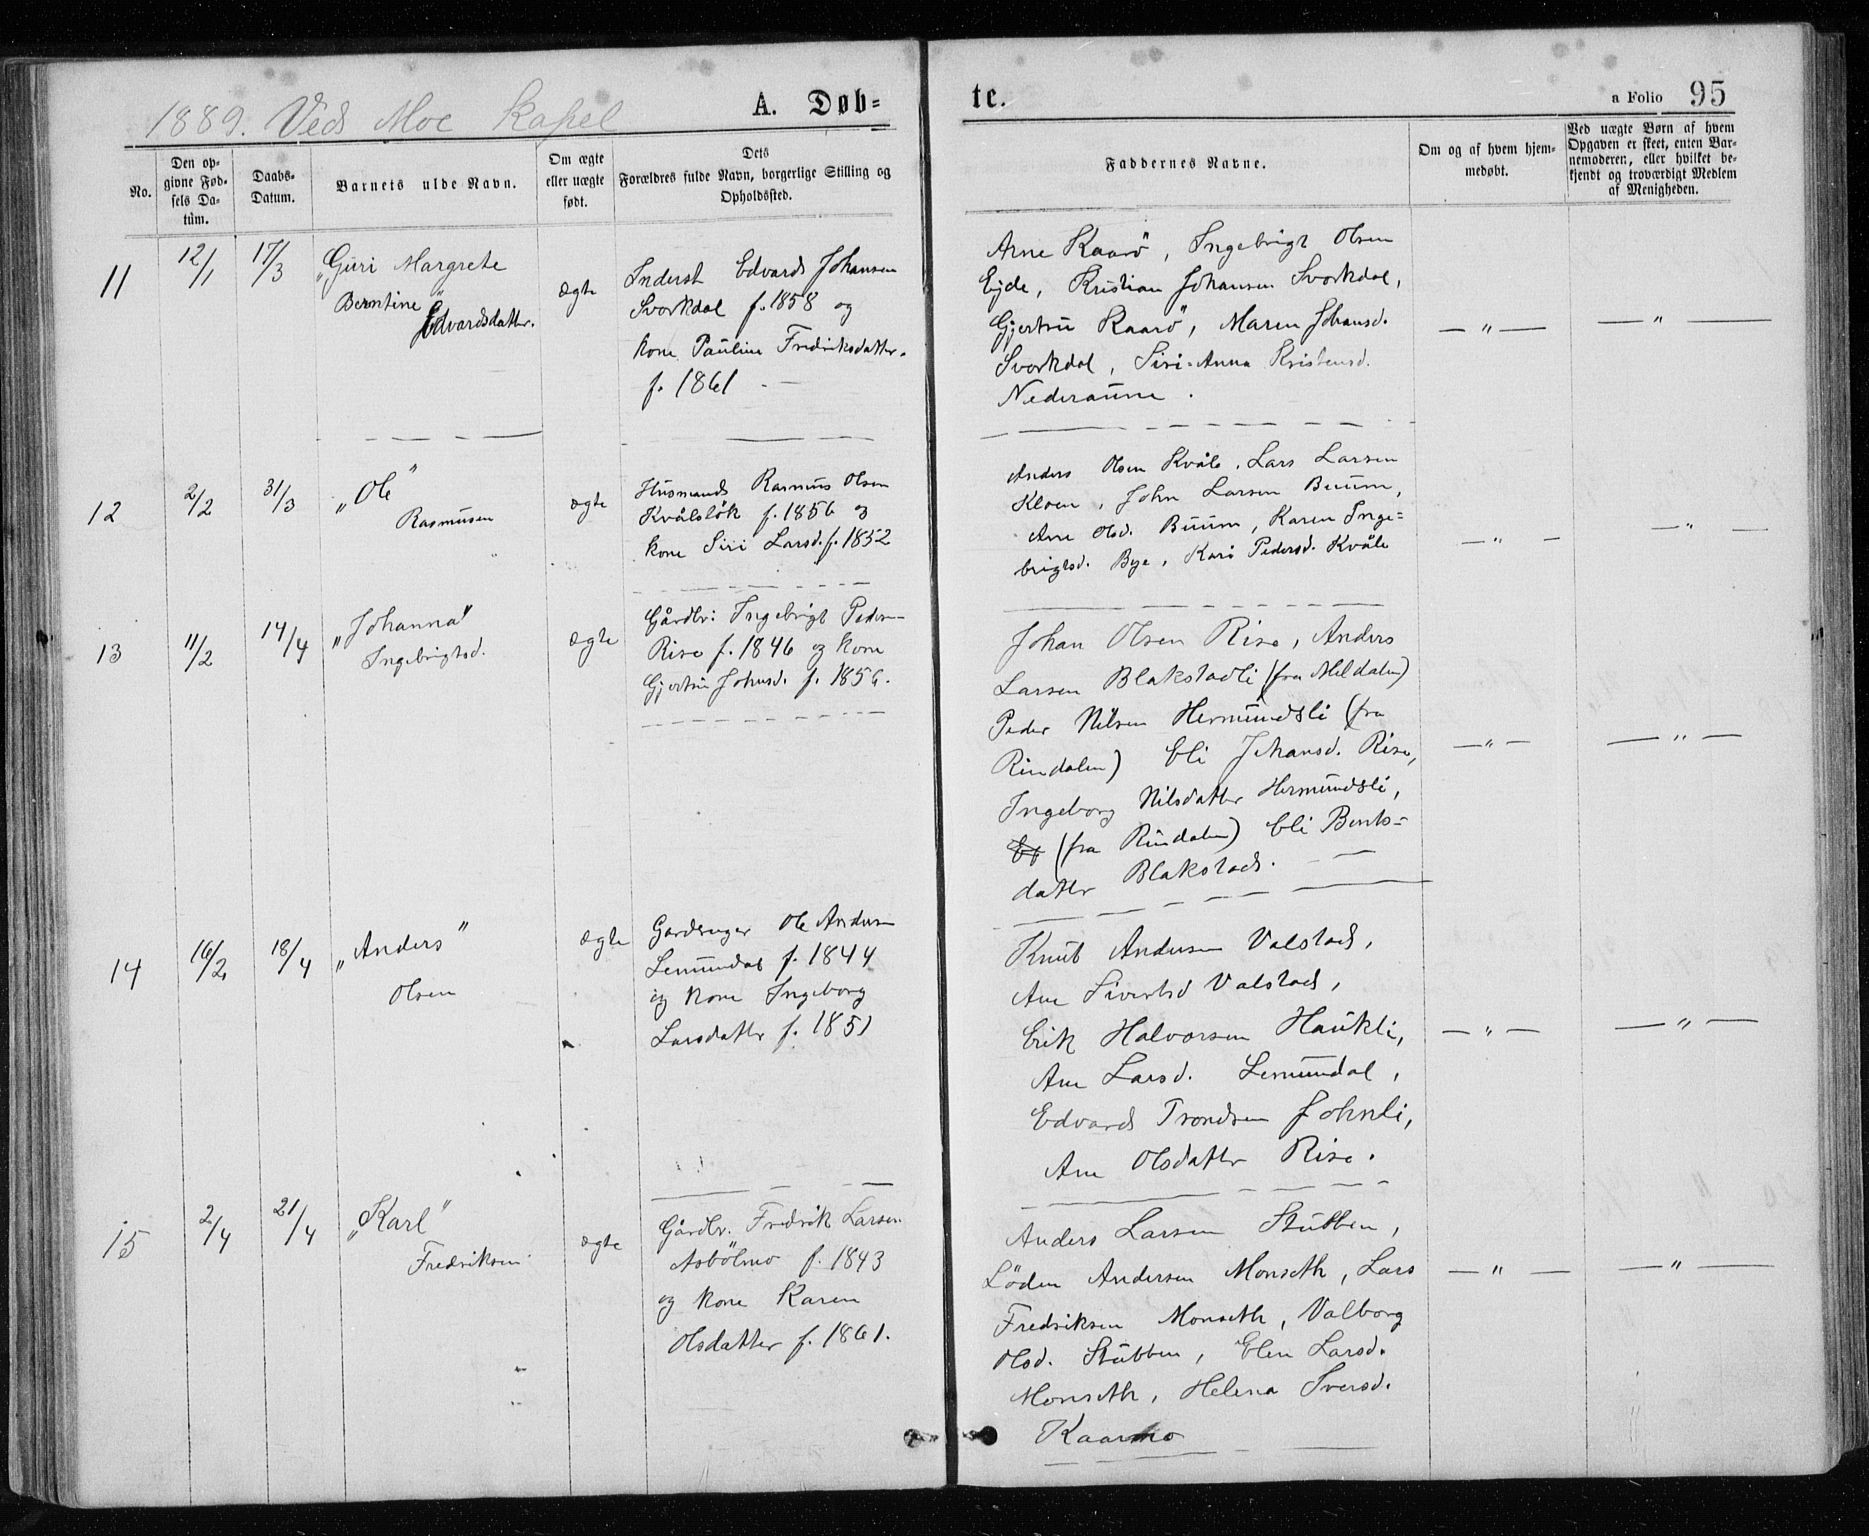 1889. Veds Moe Kapel
A. Døb=
te.
a Folio 95
No.
Den op-
givne Fød-
sels Da-
tum.
Daabs-
Datum.
Barnets ulde Navn.
Om ægte
eller uægte
født.
Dets
Forældres fulde Navn, borgerlige Stilling og
Opholdssted.
Faddernes Navne.
Om og af hvem hjem-
medøbt.
Ved uægte Børn af hvem
Opgaven er skeet, enten Bar-
nemoderen, eller hvilket be-
kjendt og troværdigt Medlem
af Menigheden.
11
12/1
17/3
„Guri Margrete
Berntine"
Edvardsdatter.
ægte
Inderst Edvard Johansen
Svorkdal f. 1858 og
kone Pauline Fredriksdatter.
f. 1861 . —
Arne Kaarø, Ingebrigt Olsen
Ejde, Kristian Johansen Svorkdal,
Gjertru Kaarø, Maren Johansd.
Svorkdal, Siri-Anna Kristensd.
Nederaune .
— „ —
— „ —
12
2/2
31/3
„Ole"
Rasmusen
ægte
Husmand Rasmus Olsen
Kvålsløk f. 1856 og
kone Siri Larsd. f. 1852
Anders Olsen Kvåle, Lars Larsen
Kloen, John Larsen Buum,
Ane Olsd. Buum, Karen Inge=
brigtsd. Bye, Kari Pedersd. Kvåle
— „ —
— „ —
13
11/2
14/4
„Johanna"
Ingebrigtsd.
ægte
Gårdbr: Ingebrigt Peders—
Rise f. 1846 og kone
Gjertru Johnsd. f. 1856.
Johan Olsen Rise, Anders
Larsen Blakstadli (fra Meldalen)
Peder Nilsen Hermundsli (fra
Rindalen) Eli Johansd. Rise,
Ingeborg Nilsdatter Hermundsli,
(fra Rindalen) Eli Bents=
datter Blakstad.
— „ —
— „ —
14
16/2
18/4
„Anders"
Olsen
ægte
Gardbruger Ole Andersen
Lemundal f. 1844
og kone Ingeborg
Larsdatter f. 1851
Knut Andersen Valstad,
Ane Sivertsd Valstad,
Erik Halvorsen Haukli,
Ane Larsd. Lemundal,
Edvard Trondsen Johnli,
Ane Olsdatter Rise.
— „ —
— „ —
15
2/4
21/4
„Karl"
Fredriksen
ægte
Gårdbr. Fredrik Larsen
Asbölmo f. 1843
og kone Karen
Olsdatter f. 1861.
Anders Larsen Stubben,
Löden Andersen Monseth, Lars
Fredriksen Monseth, Valborg
Olsd. Stubben, Elen Larsd.
Monseth, Helena Sversd.
Kaarmo
— „ —
— „ —